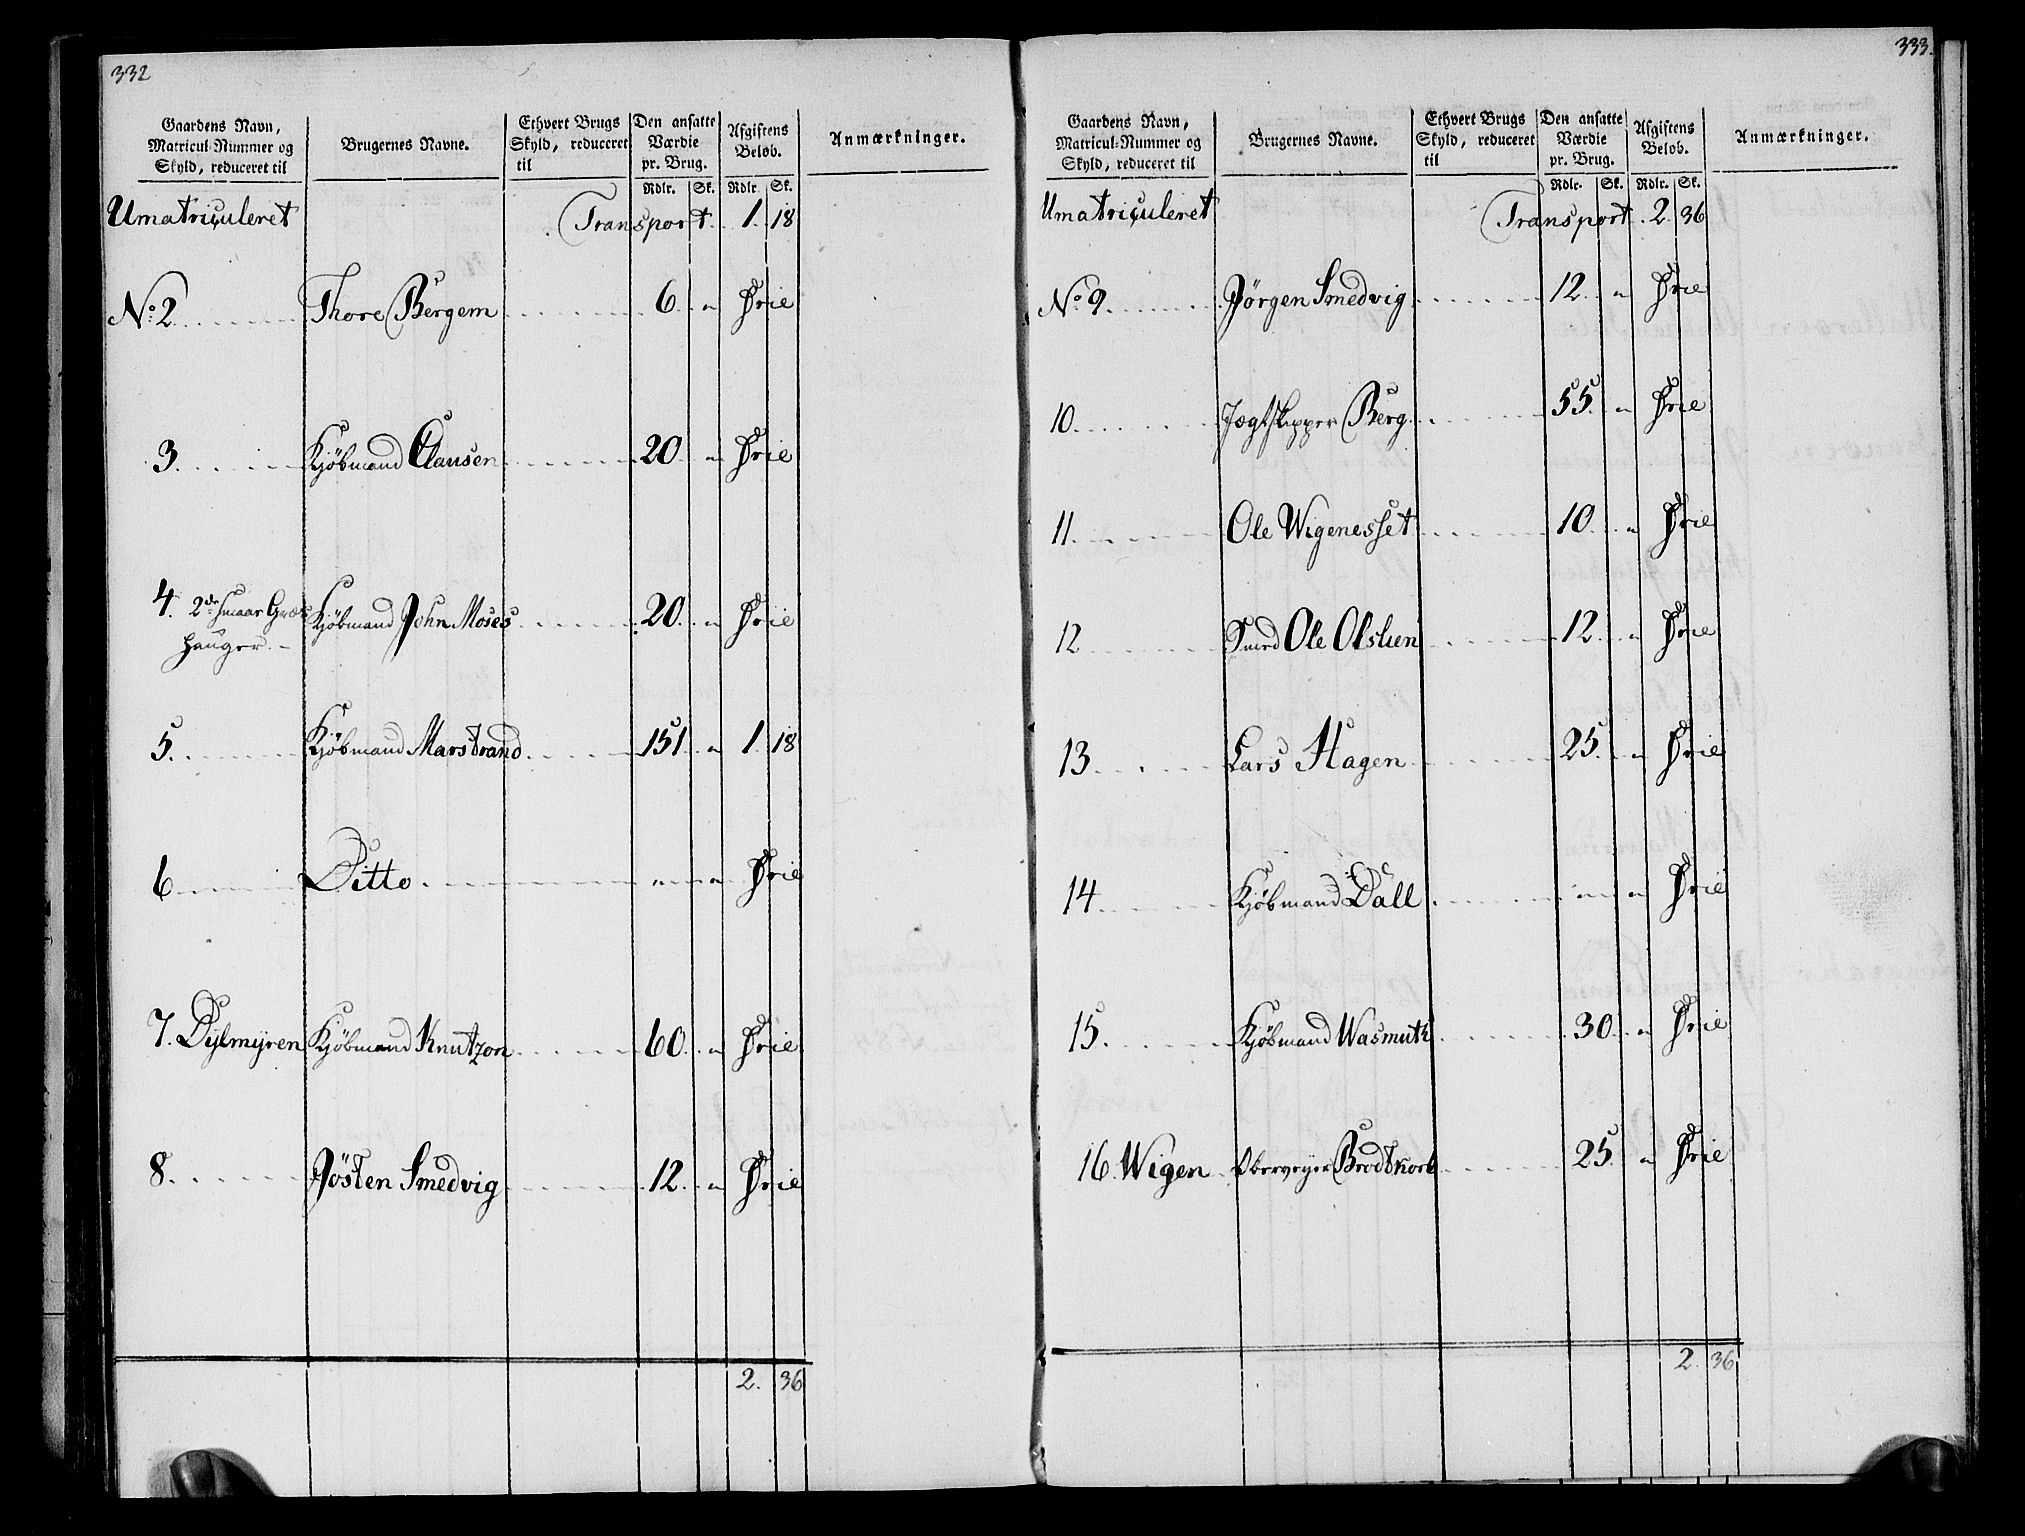 332
Gaardens Navn, Matricul-Nummer og Skyld, reduceret til | Brugernes Navne. | Ethvert Brugs Skyld, reduceret til | Den ansatte Værdie pr. Brug. | Afgiftens Beløb. | Anmærkninger.
Rdlr. Sk. Rdlr. Sk.
Umatriculeret Transport 1. 18
No. 2 Thore Bergem 6 " Frie
3. Kjøbmand Clausen 20 " Frie
4. 2de smaae Græs Kjøbmand John Moses 20. " Frie
hauger
5. Kjøbmand Marstrand 151 " 1. 18
6 Ditto " " Frie
7. Dylmyren Kjøbmand Knutzon 60. " Frie
8. Jösten Smedvig 12. " Frie
2. 36
333.
Gaardens Navn, Matricul-Nummer og Skyld, reduceret til | Brugernes Navne. | Ethvert Brugs Skyld, reduceret til | Den ansatte Værdie pr. Brug. | Afgiftens Beløb. | Anmærkninger.
Rdlr. Sk. Rdlr. Sk.
Umatriculeret Transport 2. 36
No. 9. Jörgen Smedvig 12. " Frie
10. Jægtskipper Berg 55. " Frie
11. Ole Wigenesset 10. " Frie
12 Smed Ole Olsluen 12. " Frie
13. Lars Hagen 25. " Frie
14. Kjøbmand Dall " " Frie
15. Kjøbmand Wasmuth 30. " Frie
16. Wigen Overveyer Brodtkorb 25 " Frie
2. 36